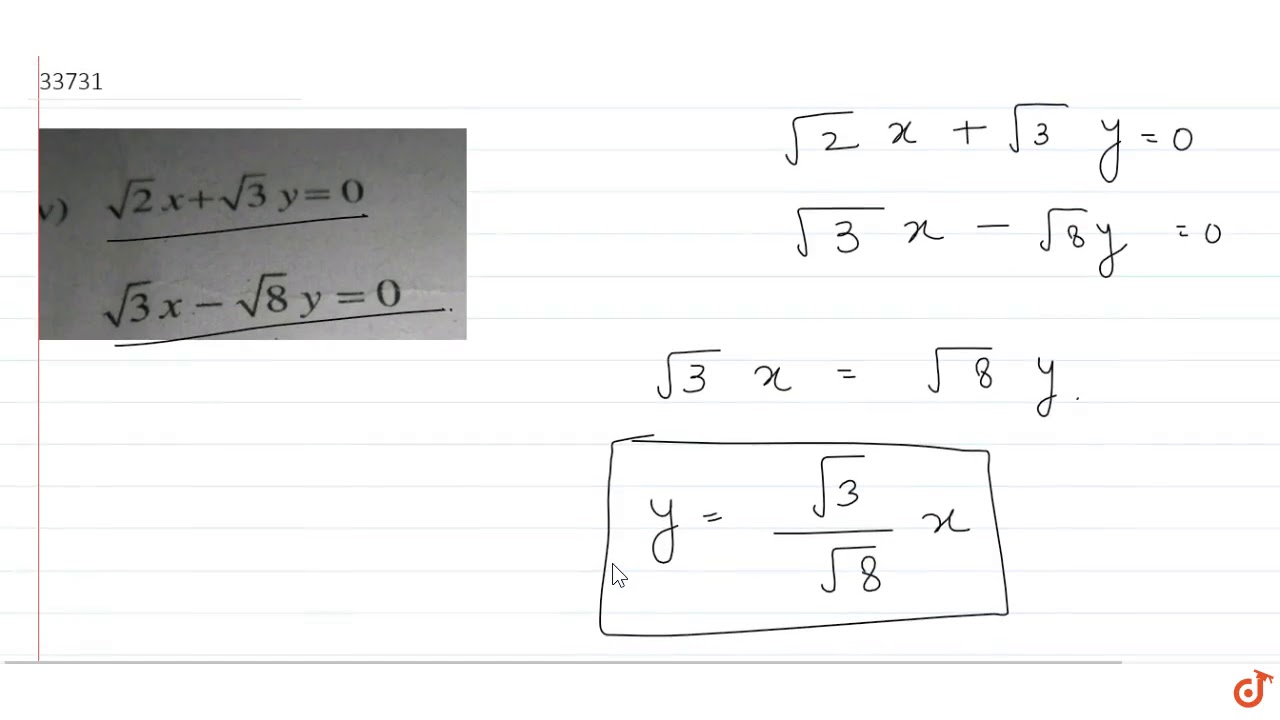 33731
v) √2 x+√3 y=0
√3 x − √8 y = 0
√2 x + √3 y = 0
√3 x − √8 y = 0
√3 x = √8 y.
y = √3/√8 x